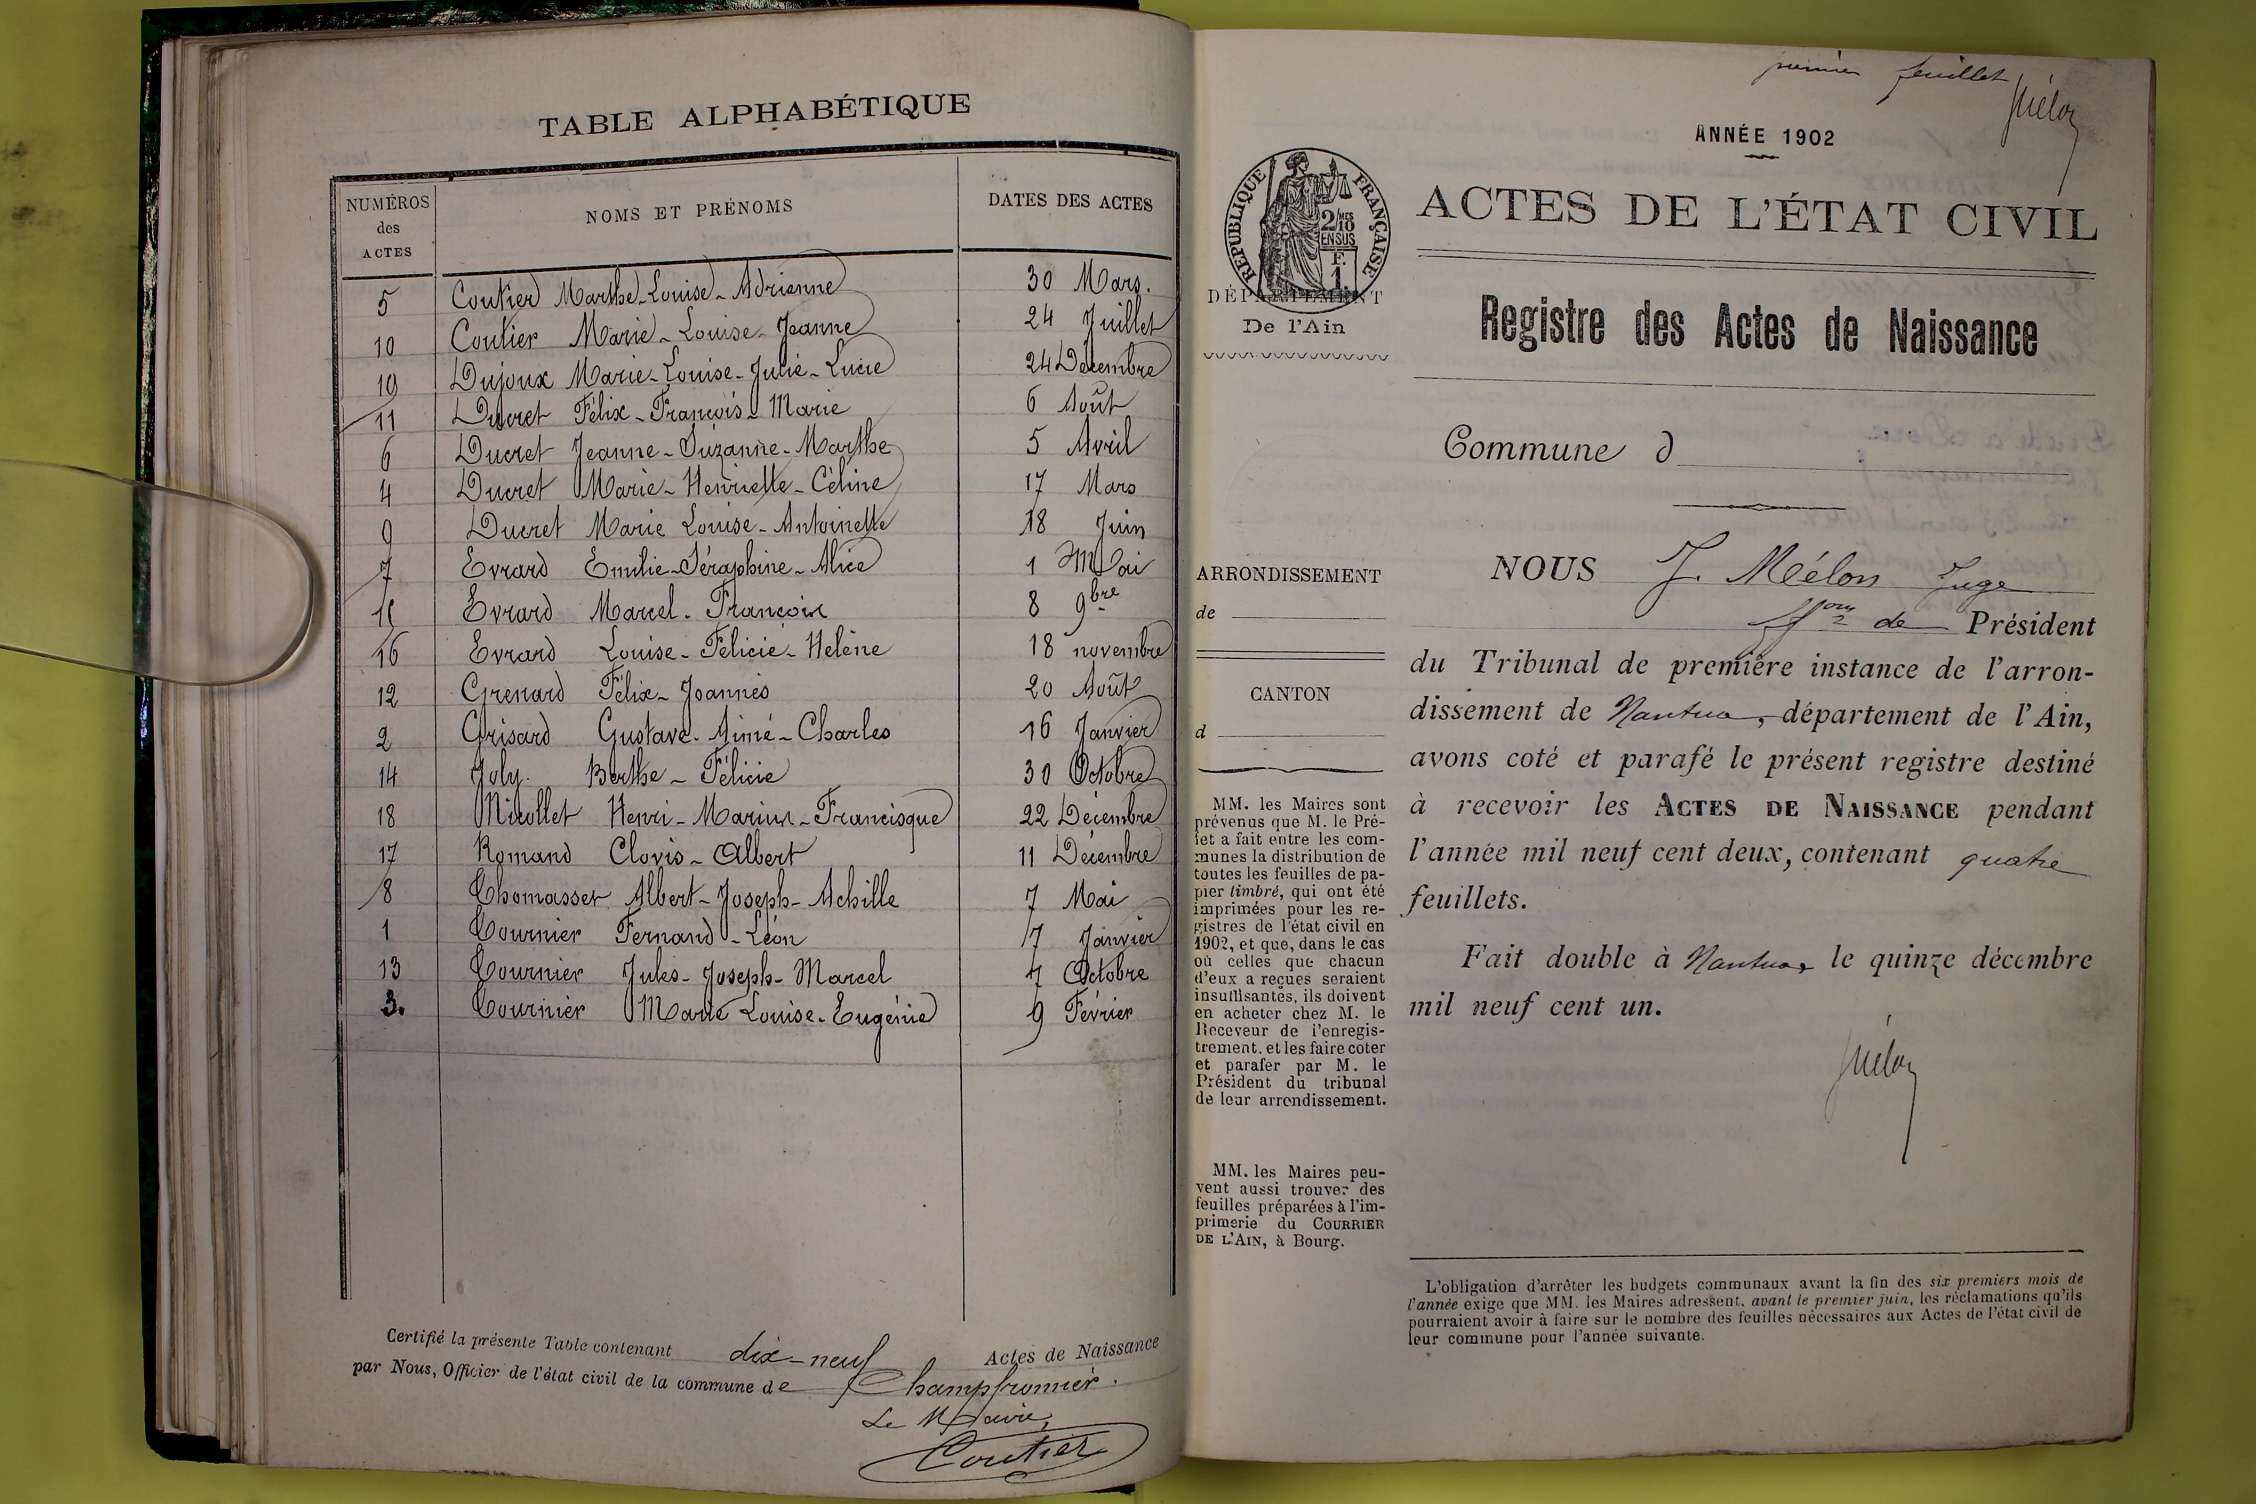 TABLE ALPHABÉTIQUE
NUMÉROS des ACTES NOMS ET PRÉNOMS DATES DES ACTES
5 Coutier Marthe-Louise-Adrienne 30 Mars.
10 Coutier Marie-Louise-Jeanne 24 Juillet
19 Dujoux Marie-Louise-Julie-Lucie 24 Décembre
11 Ducret Félix-François-Marie 6 Août
6 Ducret Jeanne-Suzanne-Marthe 5 Avril
4 Ducret Marie-Henriette-Céline 17 Mars
9 Ducret Marie Louise-Antoinette 18 Juin
7 Evrard Emilie-Séraphine-Alice 1 Mai
15 Evrard Marcel-François 8 9bre
16 Evrard Louise-Félicie-Hélène 18 novembre
12 Grenard Félix-Joannès 20 Août
2 Grisard Gustave-Aimé-Charles 16 Janvier
14 Joly Berthe-Félicie 30 Octobre
18 Nicollet Henri-Marius-Francisque 22 Décembre
17 Romand Clovis-Albert 11 Décembre
8 Thomasset Albert-Joseph-Achille 7 Mai
1 Tournier Fernand-Léon 7 Janvier
13 Tournier Jules-Joseph-Marcel 4 Octobre
3. Tournier Marie Louise-Eugénie 9 Février
Certifié la présente Table contenant dix-neuf Actes de Naissance
par Nous, Officier de l'état civil de la commune de Champfromier.
Le Maire,
Coutier
premier feuillet
JMélon
ANNÉE 1902
RÉPUBLIQUE FRANÇAISE
2/10 MES
EN SUS
F.
1.
ACTES DE L'ÉTAT CIVIL
DÉPARTEMENT
De l'Ain
Registre des Actes de Naissance
Commune d
ARRONDISSEMENT
de
CANTON
d
MM. les Maires sont
prévenus que M. le Pré-
fet a fait entre les com-
munes la distribution de
toutes les feuilles de pa-
pier timbré, qui ont été
imprimées pour les re-
gistres de l'état civil en
1902, et que, dans le cas
où celles que chacun
d'eux a reçues seraient
insuffisantes, ils doivent
en acheter chez M. le
Receveur de l'enregis-
trement, et les faire coter
et parafer par M. le
Président du tribunal
de leur arrondissement.
MM. les Maires peu-
vent aussi trouver des
feuilles préparées à l'im-
primerie du COURRIER
DE L'AIN, à Bourg.
NOUS J. Mélon Juge
de Président
du Tribunal de première instance de l'arron-
dissement de Nantua, département de l'Ain,
avons coté et parafé le présent registre destiné
à recevoir les ACTES DE NAISSANCE pendant
l'année mil neuf cent deux, contenant quatre
feuillets.
Fait double à Nantua, le quinze décembre
mil neuf cent un.
JMélon
L'obligation d'arrêter les budgets communaux avant la fin des six premiers mois de
l'année exige que MM. les Maires adressent, avant le premier juin, les réclamations qu'ils
pourraient avoir à faire sur le nombre des feuilles nécessaires aux Actes de l'état civil de
leur commune pour l'année suivante.